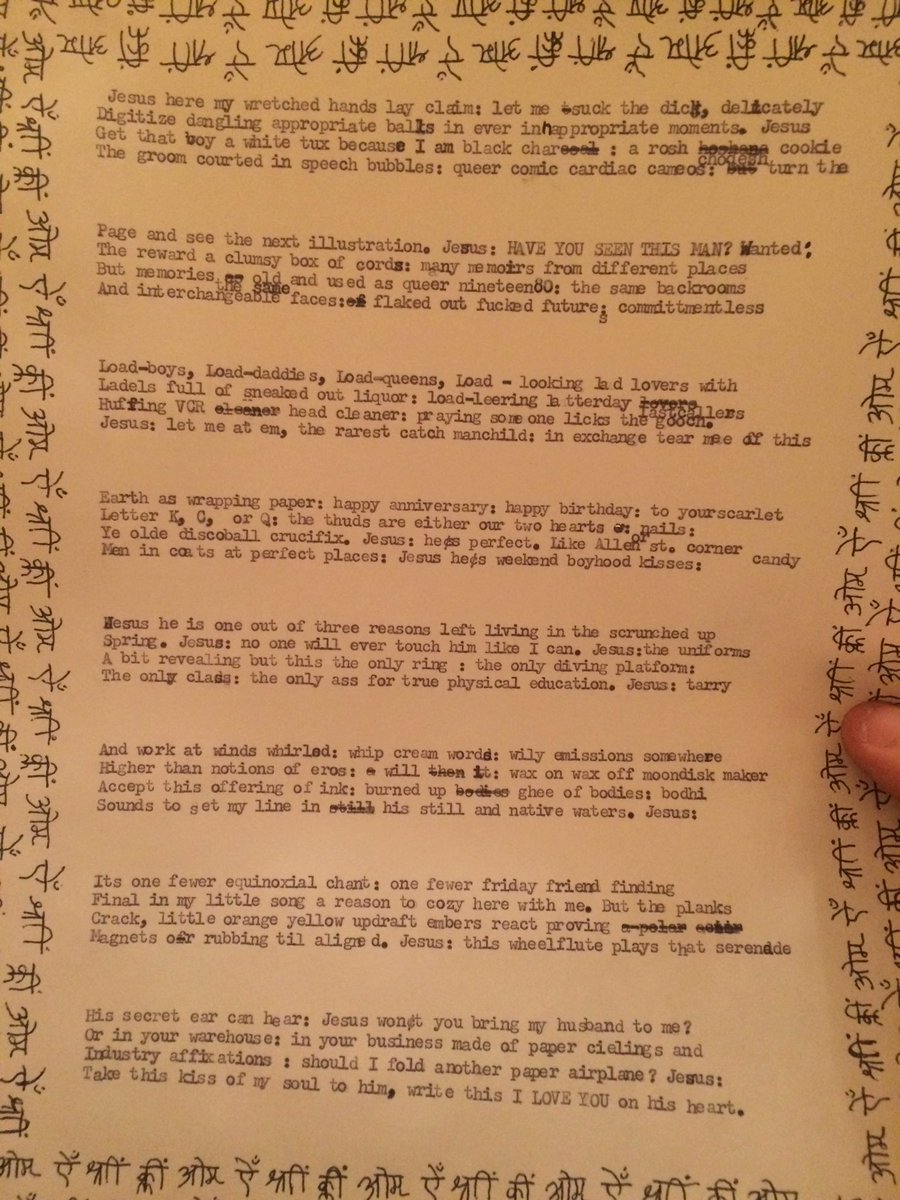 ओम ऐं श्रीं क्लीं ओम ऐं श्रीं क्लीं ओम ऐं श्रीं क्लीं ओम ऐं
Jesus here my wretched hands lay claim: let me suck the dick, delicately
Digitize dangling appropriate balls in ever inhappropriate moments. Jesus
Get that boy a white tux because I am black char : a rosh chodesh cookie
The groom courted in speech bubbles: queer comic cardiac cameos: turn the
Page and see the next illustration. Jesus: HAVE YOU SEEN THIS MAN? Wanted:
The reward a clumsy box of cords: many memoirs from different places
But memories the same old and used as queer nineteen80: the same backrooms
And interchangeable faces: flaked out fucked futures; committmentless
Load-boys, Load-daddies, Load-queens, Load - looking lad lovers with
Ladels full of sneaked out liquor: load-leering latterday lastcallers
Huffing VCR head cleaner: praying someone licks the gooch.
Jesus: let me at em, the rarest catch manchild: in exchange tear mee off this
Earth as wrapping paper: happy anniversary: happy birthday: to yourscarlet
Letter K, C, or Q: the thuds are either our two hearts or nails:
Ye olde discoball crucifix. Jesus: he's perfect. Like Allen st. corner candy
Men in coats at perfect places: Jesus he's weekend boyhood kisses:
Jesus he is one out of three reasons left living in the scrunched up
Spring. Jesus: no one will ever touch him like I can. Jesus:the uniforms
A bit revealing but this the only ring : the only diving platform:
The only class: the only ass for true physical education. Jesus: tarry
And work at winds whirled: whip cream words: wily emissions somewhere
Higher than notions of eros: will it: wax on wax off moondisk maker
Accept this offering of ink: burned up ghee of bodies: bodhi
Sounds to set my line in his still and native waters. Jesus:
Its one fewer equinoxial chant: one fewer friday friend finding
Final in my little song a reason to cozy here with me. But the planks
Crack, little orange yellow updraft embers react proving
Magnets or rubbing til aligned. Jesus: this wheelflute plays that serenade
His secret ear can hear: Jesus won't you bring my husband to me?
Or in your warehouse: in your business made of paper cielings and
Industry affixations : should I fold another paper airplane? Jesus:
Take this kiss of my soul to him, write this I LOVE YOU on his heart.
ओम ऐं श्रीं क्लीं ओम ऐं श्रीं क्लीं ओम ऐं श्रीं क्लीं ओम